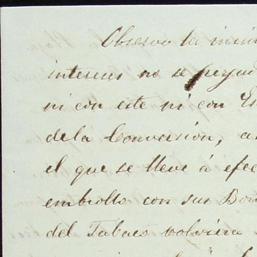 Observo la
intereses no se
ni con este ni con
de la Conversion, a
el que se lleve á efec
embrollo con sus
del Tabaco volviera